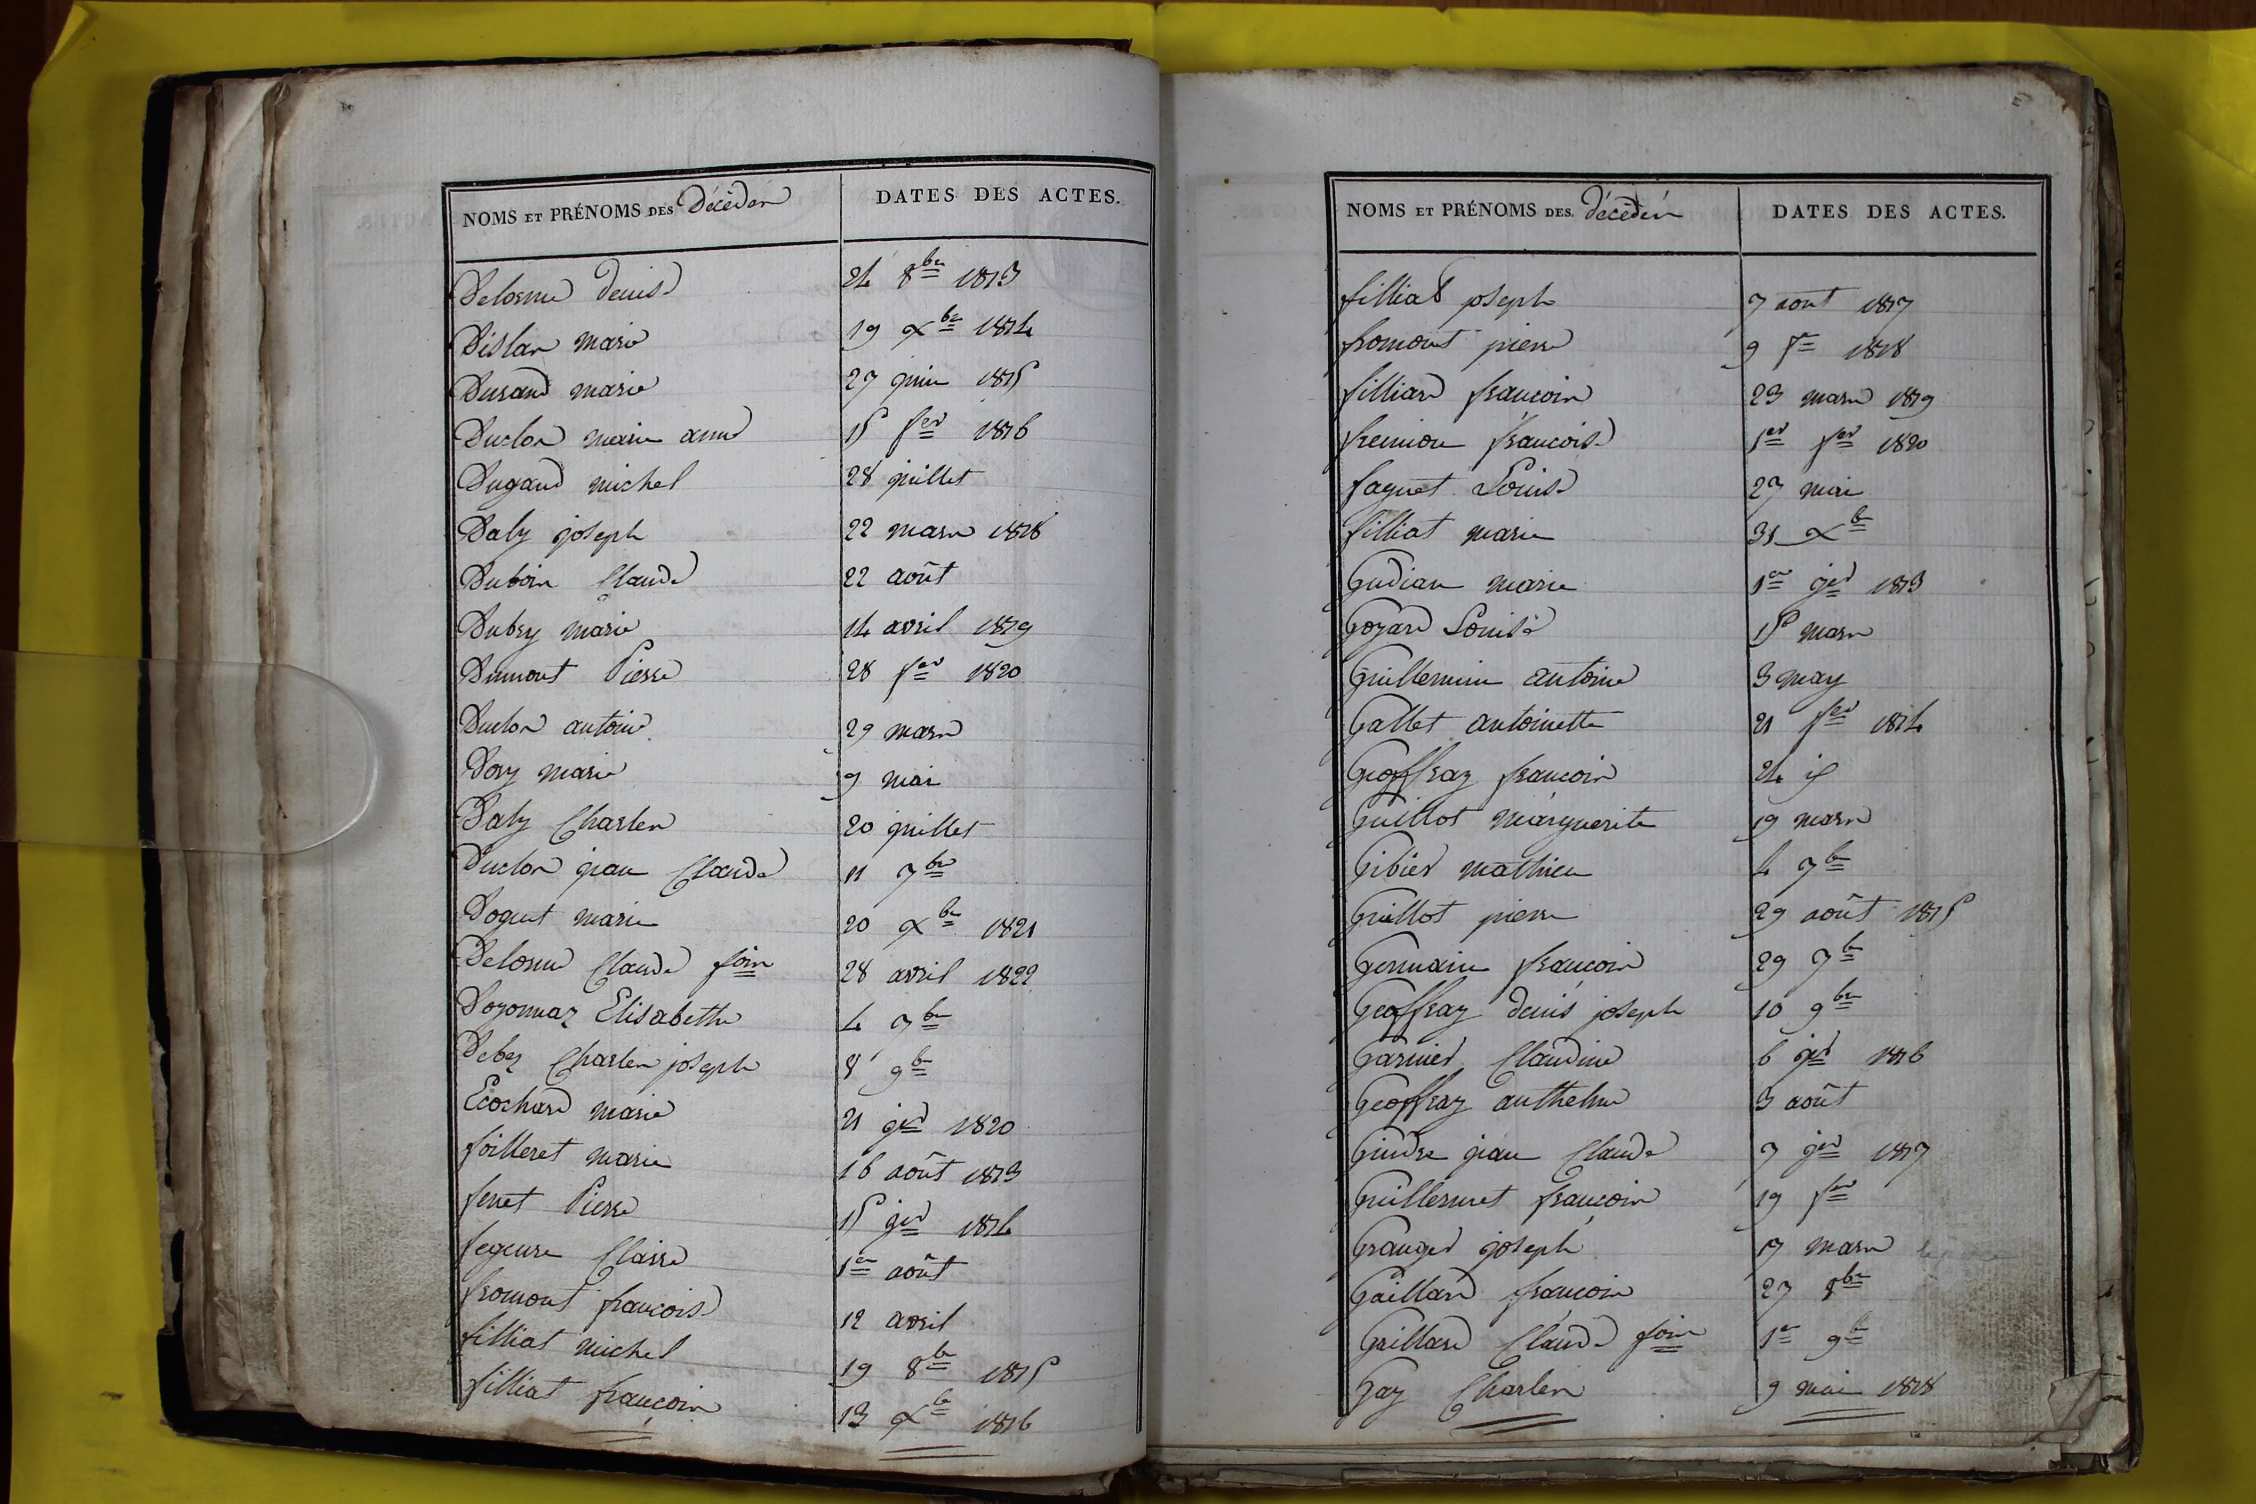 NOMS ET PRÉNOMS DES Décédés DATES DES ACTES.
Delorme denise 24 8bre 1813
Dislar marie 19 xbre 1814
Durand marie 27 juin 1815
Duclos marie anne 15 fer 1816
Dugand michel 28 juillet
Daly joseph 22 mars 1818
Dubois Claude 22 août
Dubry marie 14 avril 1819
Dumont Pierre 28 fer 1820
Duclos antoine 29 mars
Dory marie 9 mai
Daly Charles 20 juillet
Duclos jean Claude 11 7bre
Doguet marie 20 xbre 1821
Delorme Claude fois 28 avril 1822
Doyonnaz Elisabethe 4 7bre
Debez Charles joseph 8 9bre
Ecochard marie 21 jer 1820
foilleret marie 16 août 1813
ferret Pierre 15 jer 1814
fegeure Claire 1er août
fromont françoise 12 avril
filliat michel 19 8bre 1815
filliat françois 13 xbre 1816
NOMS ET PRÉNOMS DES décédés DATES DES ACTES.
filliat joseph 7 aout 1817
fromont pierre 9 fer 1818
filliard françois 23 mars 1819
fremion françoise 1er fer 1820
faguet Louise 27 mai
filliat marie 31 xbre
Gudian marie 1er jer 1813
Goyard Louise 15 mars
Guillemin antoine 3 may
Gallet antoinette 21 fer 1814
Geoffray françois 24 id
Guillot marguerite 19 mars
Gibier mathieu 4 7bre
Guillot pierre 29 août 1815
Germain françois 29 7bre
Geoffray denis joseph 10 9bre
Garnier Claudine 6 jer 1816
Geoffray anthelme 3 août
Guidre jean Claude 7 jer 1817
Guillermet françois 19 fer
Granger joseph 17 mars
Gaillard françois 27 8bre
Gaillard Claude fois 1er 9bre
Gay Charles 9 mai 1818